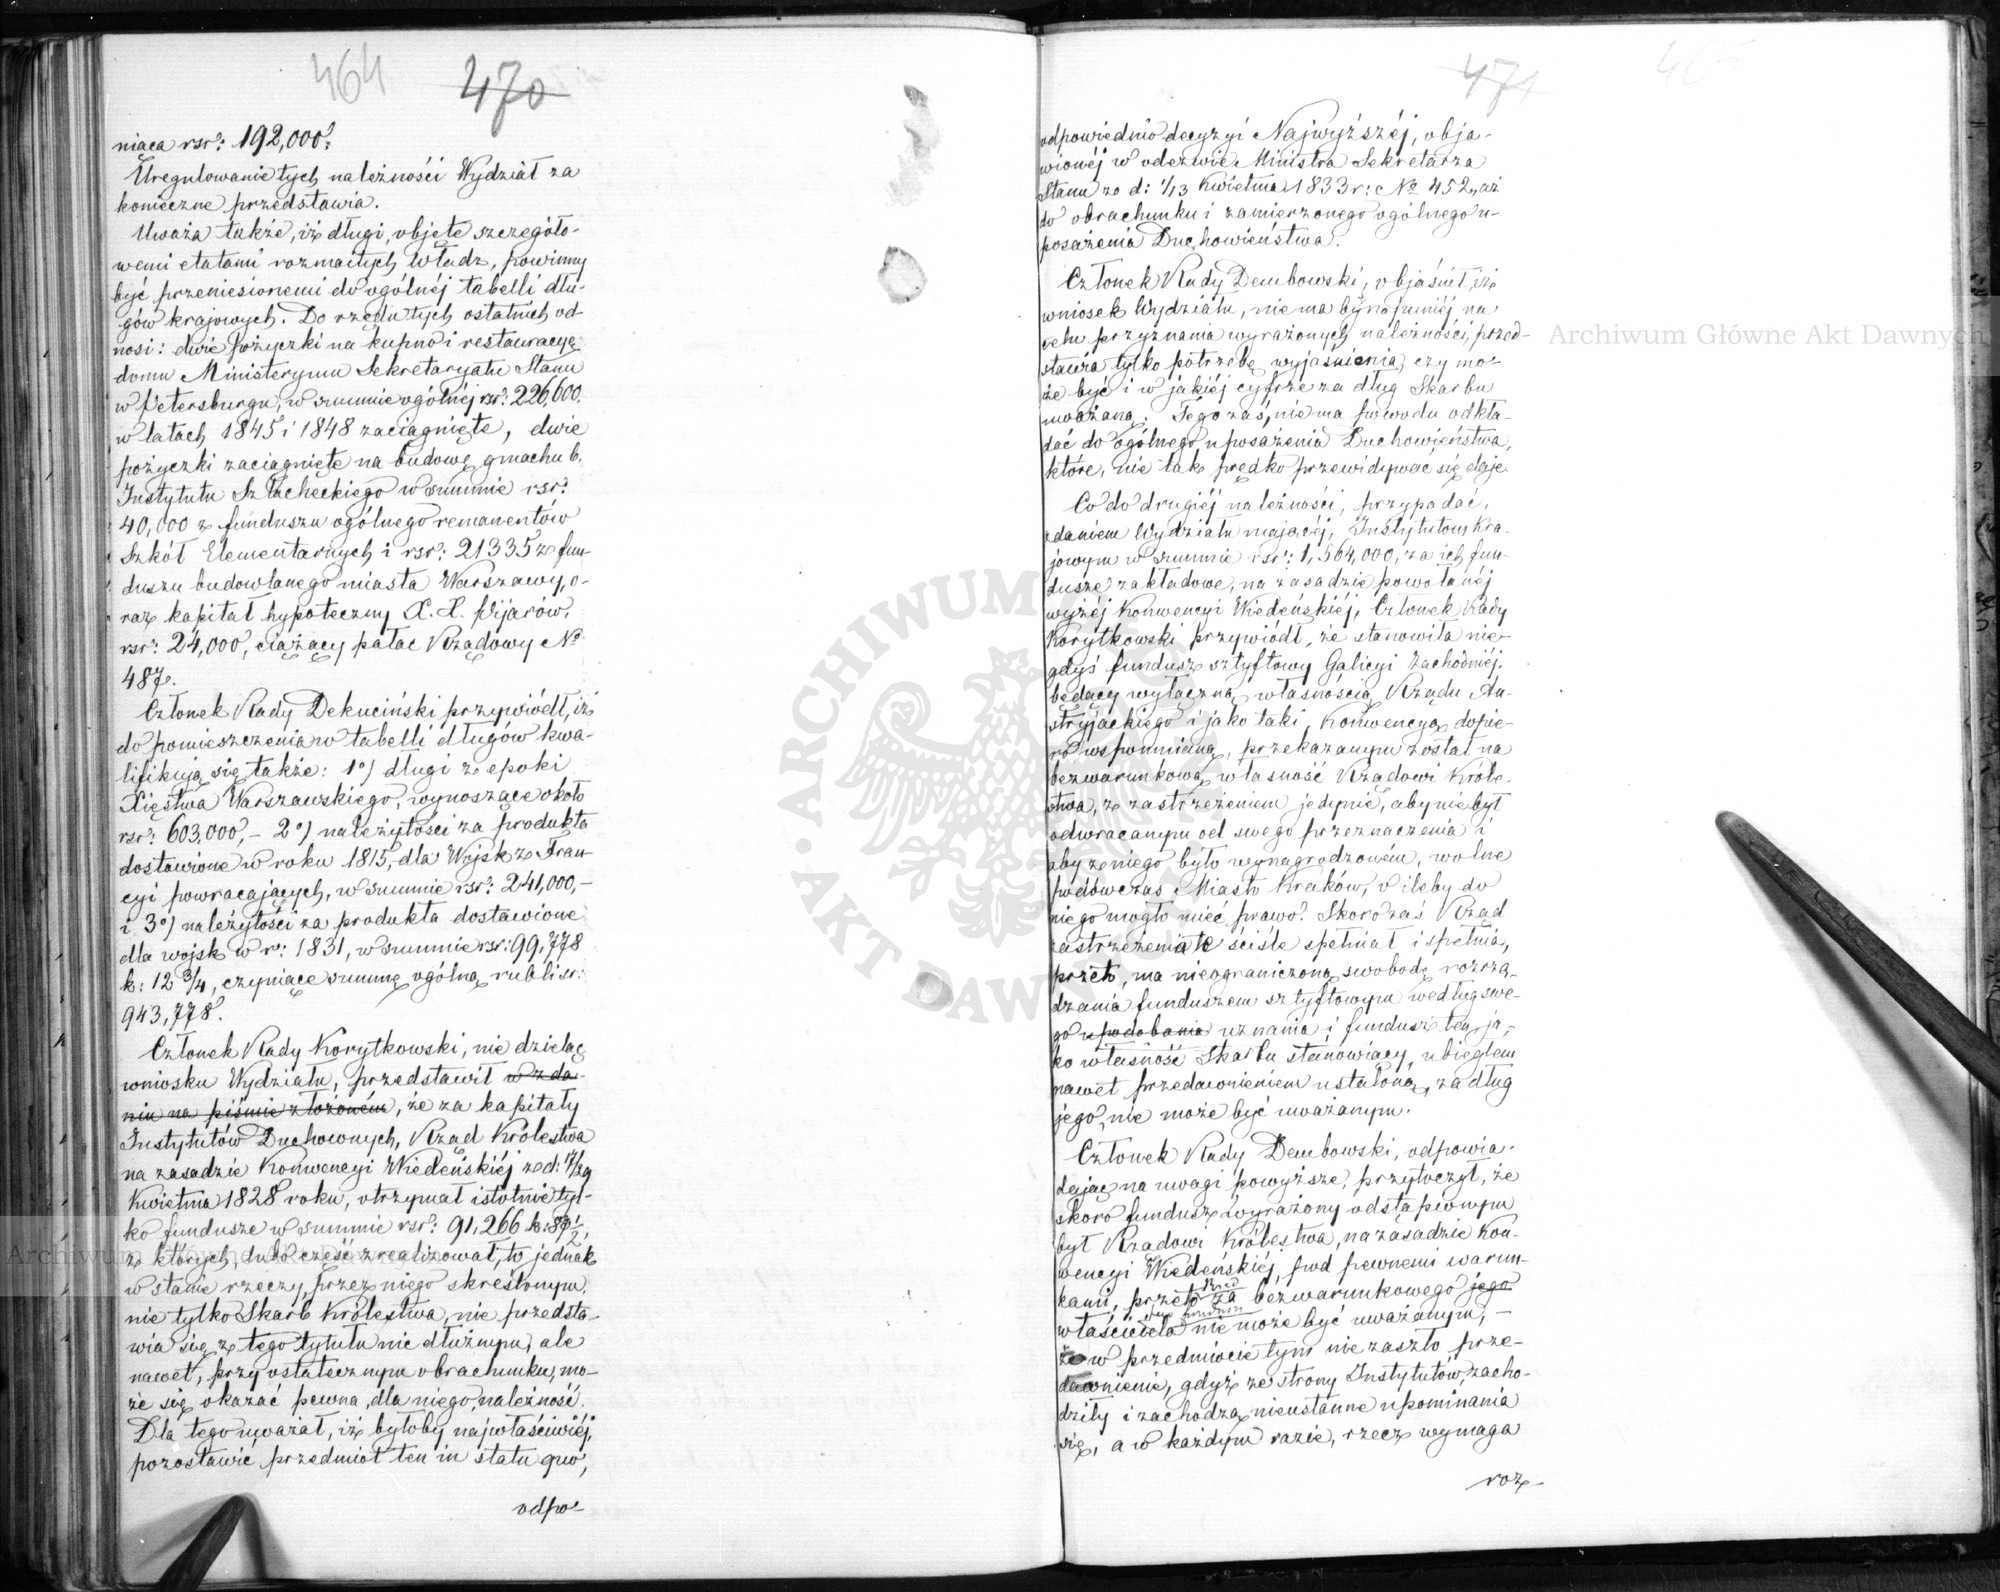 464 470
niąca rsr: 192,000.
Uregulowanie tych należności Wydział za
konieczne przedstawia.
Uważa także, iż długi, objęte szczegóło-
wemi etatami rozmaitych Władz, powinny
być przeniesionemi do ogólnéj tabelli dłu-
gów krajowych. Do rzędu tych ostatnich od-
nosi: dwie pożyczki na kupno i restauracyę
domu Ministeryum Sekretaryatu Stanu
w Petersburgu, w summie ogólnéj rsr: 226,600.
w latach 1845 i 1848 zaciągnięte, dwie
pożyczki zaciągnięte na budowę gmachu b.
Instytutu Szlacheckiego w summie rsr:
40,000 z funduszu ogólnego remanentów
Szkół Elementarnych i rsr: 21335 z fun-
duszu budowlanego miasta Warszawy, o-
raz kapitał hypoteczny X. X. Pijarów,
rsr: 24,000, ciążący pałac Rządowy No
487.
Członek Rady Dekuciński przywiódł, iż
do pomieszczenia w tabelli długów kwa-
lifikują się także: 1o) długi z epoki
Xięstwa Warszawskiego, wynoszące około
rsr: 603,000, – 2o) należytości za produkta
dostawione w roku 1815, dla Wojsk z Fran-
cyi powracających, w summie rsr: 241,000, –
i 3o) należytości za produkta dostawione
dla wojsk w r: 1831, w summie rsr: 99,778
k: 12 3/4, czyniące summę ogólną rubli sr:
943,778.
Członek Rady Korytkowski, nie dzieląc
wniosku Wydziału, przedstawił w zda-
niu na piśmie złożoném, że za kapitały
Instytutów Duchownych, Rząd Królestwa
na zasadzie Konwencyi Wiedeńskiéj z d: 17/29
Kwietnia 1828 roku, otrzymał istotnie tyl-
ko fundusze w summie rsr: 91,266 k: 1/2,
z których, lubo część zrealizował, to jednak
w stanie rzeczy, przez niego skreślonym,
nie tylko Skarb Królestwa, nie przedsta-
wia się z tego tytułu nie dłużnym, ale
nawet, przy ostatecznym obrachunku, mo-
że się okazać pewna, dla niego, należność.
Dla tego uważał, iż byłoby najwłaściwiéj,
pozostawić przedmiot ten in statu quo,
odpo-
471 465
odpowiednio decyzyi Najwyższéj, obja-
wionéj w odezwie Ministra Sekretarza
Stanu z d: 1/13 Kwietnia 1833 r: No 452, aż
do obrachunku i zamierzonego ogólnego u-
posażenia Duchowieństwa.
Członek Rady Dembowski, objaśnił, iż
wniosek Wydziału, nie ma bynajmniéj na
celu przyznania wyrażonych należności, przed-
stawia tylko potrzebę wyjaśnienia, czy mo-
że być i w jakiéj cyfrze za dług Skarbu
uważaną. Tego zaś, nie ma powodu odkła-
dać do ogólnego uposażenia Duchowieństwa,
które, nie tak prędko przewidywać się daje.
Co do drugiéj należności, przypadać,
zdaniem Wydziału mającéj, Instytutom Kra-
jowym w summie rsr: 1,564,000, za ich fun-
dusze zakładowe, na zasadzie powołanéj
wyżéj Konwencyi Wiedeńskiéj, Członek Rady
Korytkowski przywiódł, że stanowiła nie-
gdyś fundusz sztyftowy Galicyi Zachodniéj,
będący wyłączną własnością Rządu Au-
stryjackiego i jako taki, Konwencyą dopie-
ro wspomnioną, przekazanym został na
bezwarunkową własność Rządowi Króle-
stwa, z zastrzeżeniem jedynie, aby nie był
odwracanym od swego przeznaczenia i
aby z niego było wynagrodzoném, wolne
podówczas Miasto Kraków, o ileby do
niego mogło mieć prawo. Skoro zaś Rząd
zastrzeżenia te ściśle spełniał i spełnia,
przeto, ma nieograniczoną swobodę rozrzą-
dzania funduszem sztyftowym według swe-
go upodobania uznania i fundusz ten, ja-
ko własność Skarbu stanowiący, ubiegłem
nawet przedawnieniem ustaloną, za dług
jego, nie może być uważanym.
Członek Rady Dembowski, odpowia-
dając na uwagi powyższe, przytoczył, że
skoro fundusz wyrażony odstąpionym
był Rządowi Królestwa, na zasadzie Kon-
wencyi Wiedeńskiéj, pod pewnemi warun-
kami, przeto Rząd za bezwarunkowego jego
właściciela nie może być uważanym, –
że w przedmiocie tym nie zaszło prze-
dawnienie, gdyż ze strony Instytutów, zacho-
dziły i zachodzą nieustanne upominania
się, a w każdym razie, rzecz wymaga
roz-
Archiwum Główne Akt Dawnych
Archiwum Główne Akt Dawnych
ARCHIWUM GŁÓWNE AKT DAWNYCH